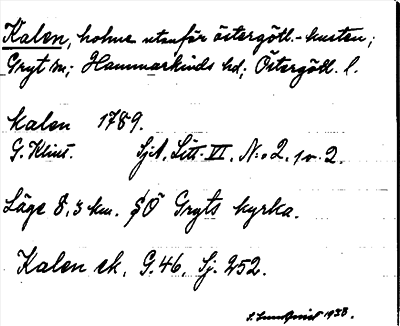 Kalen, holme utanför östergötl.-kusten;
Gryt sn; Hammarkinds hd; Östergötl. l.
Kalen 1789.
G. Klint. SjA, Litt. VI, N:o 2, 1 o. 2.
Läge 8,3 km. SÖ Gryts kyrka.
Kalen ek, G.46, Sj. 252.
1938.